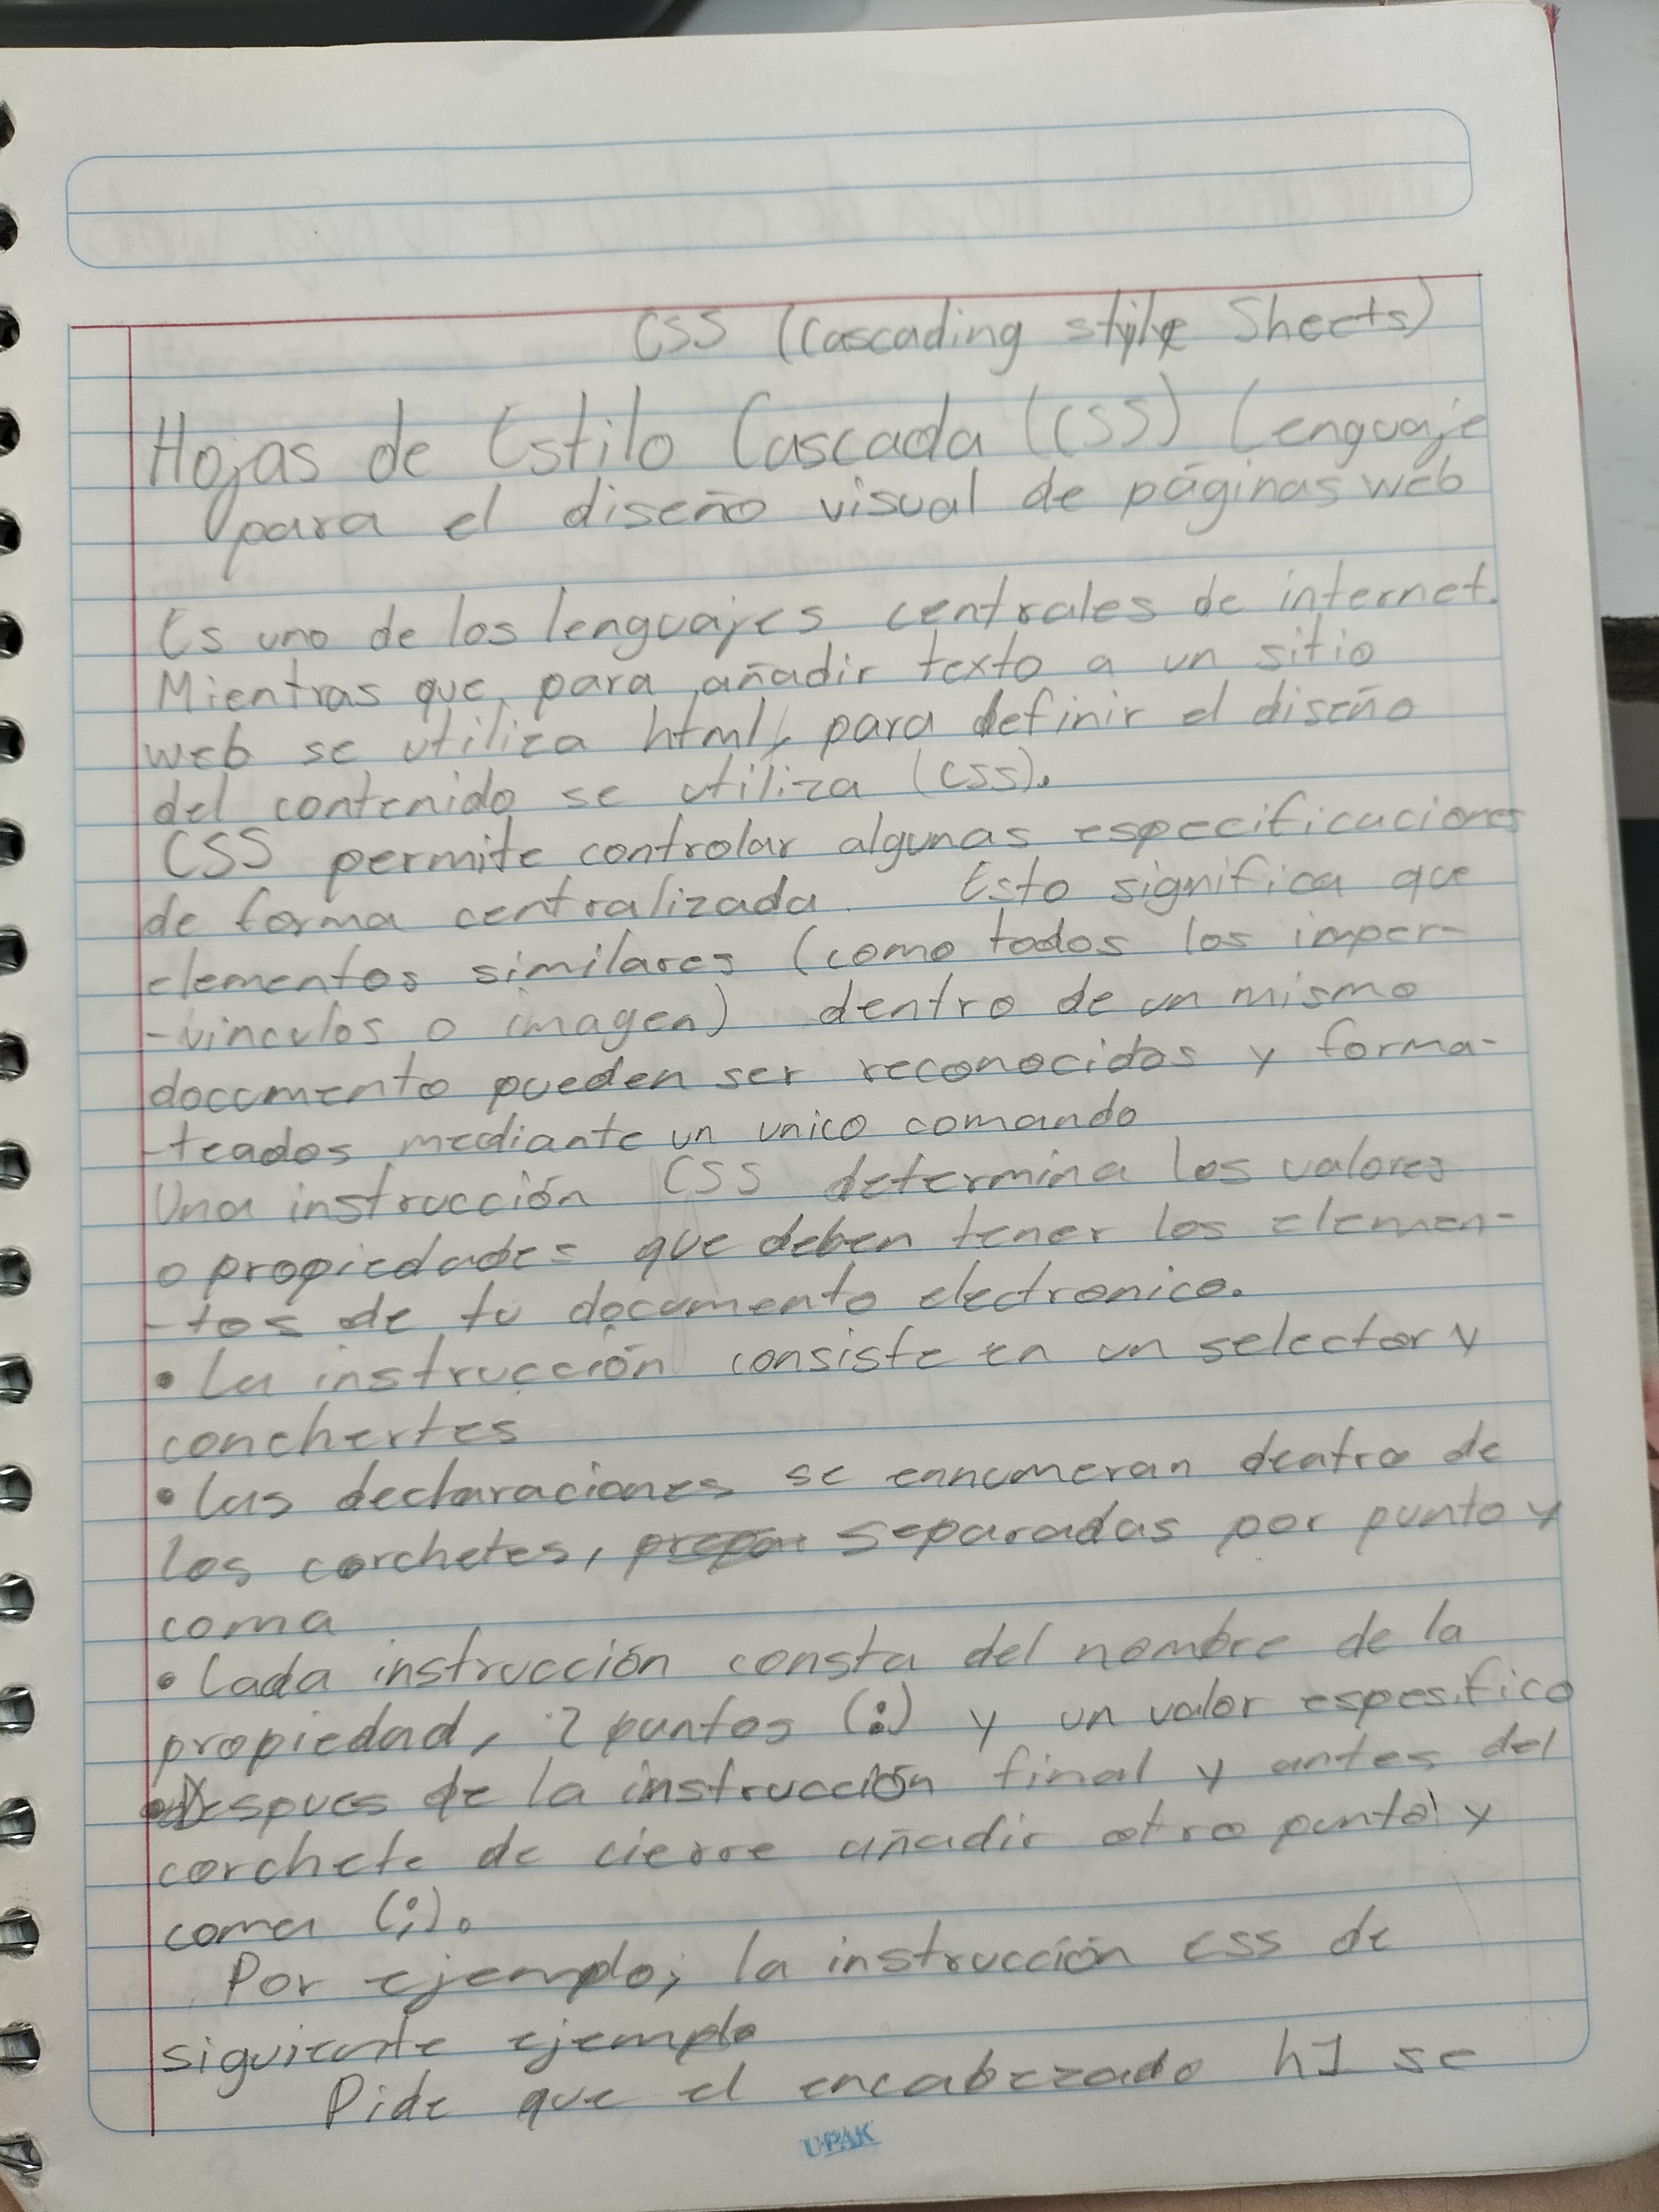 CSS (Cascading style Sheets)
Hojas de Estilo Cascada (CSS) Lenguaje
para el diseño visual de páginas web
Es uno de los lenguajes centrales de internet.
Mientras que, para añadir texto a un sitio
web se utiliza html, para definir el diseño
del contenido se utiliza (CSS).
CSS permite controlar algunas especificaciones
de forma centralizada. Esto significa que
elementos similares (como todos los imper-
-vinculos o imagen) dentro de un mismo
documento pueden ser reconocidos y forma-
-teados mediante un unico comando
Una instrucción CSS determina los valores
o propiedades que deben tener los elemen-
-tos de tu documento electronico.
• La instrucción consiste en un selector y
conchertes
• Las declaraciones se ennumeran dentro de
los corchetes, separadas por punto y
coma
• Cada instrucción consta del nombre de la
propiedad, 2 puntos (:) y un valor espesifico
• Despues de la instrucción final y antes del
corchete de cierre añadir otro punto y
coma (;).
Por ejemplo; la instrucción css de
siguiente ejemplo
Pide que el encabezado h1 se
UPAK